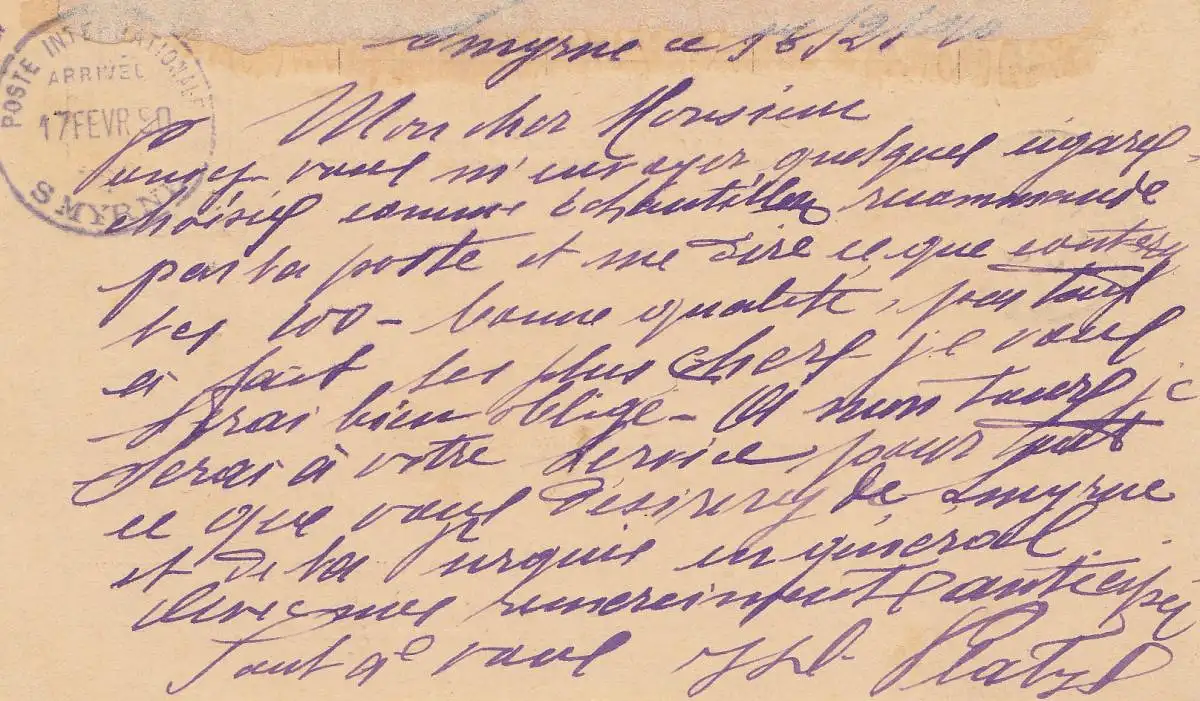 POSTE INTERNATIONALE
ARRIVÉE
17 FEVR 90
SMYRNE
Smyrne ce 16/2
Mon cher Monsieur
vous m'envoyer quelques cigares
choisis comme échantillon recommandé
par la poste et me dire ce que
les 100 - bonne qualité, pas tout
à fait les plus chers je vous
serai bien obligé - A mon tour je
serai à votre service pour tout
ce que vous désirerez de Smyrne
et de la urquie en général
Avec mes remerciments
Tout à vous